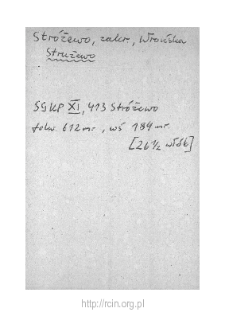 Stróżewo, zakr., Wrońska
Strużewo
SGKP XI, 413 Stróżewo
folw. 612 mr., wś 184 mr
[26 1/2 włók]
http://rcin.org.pl